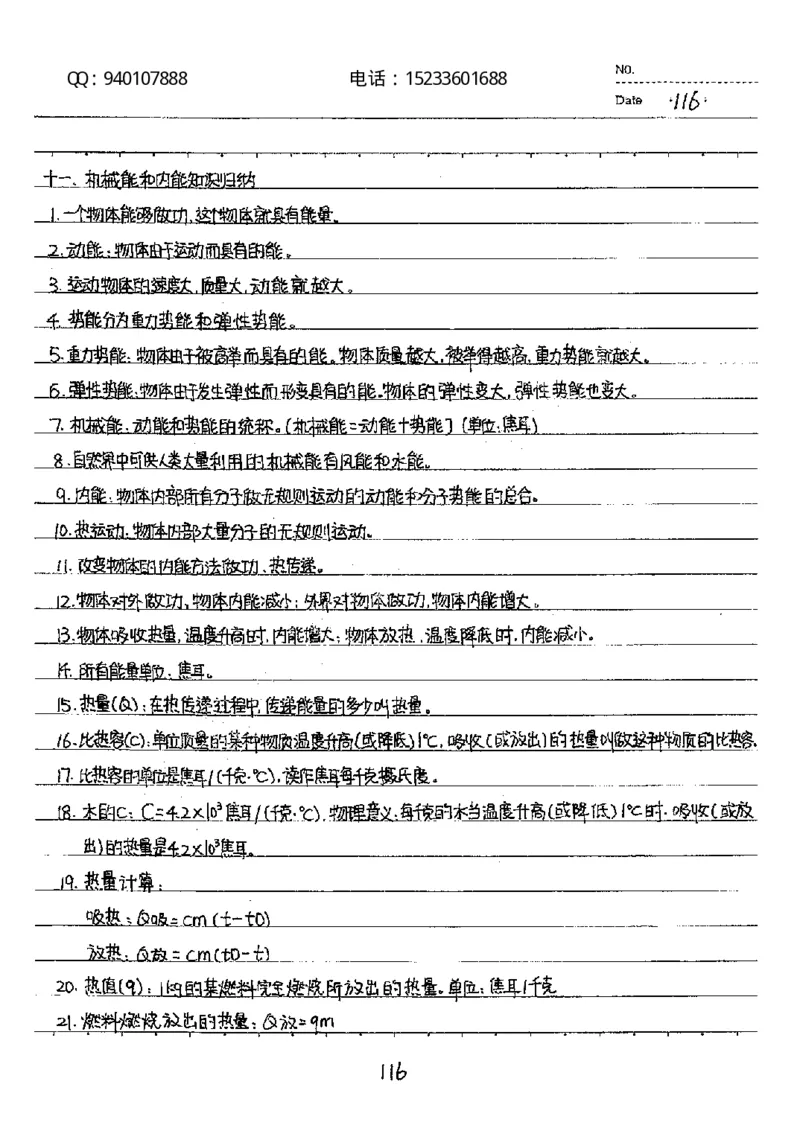 QQ：940107888 电话：15233601688 No.
Date ·116·
十一、机械能和内能知识归纳
1.一个物体能够做功,这个物体就具有能量。
2.动能：物体由于运动而具有的能。
3.运动物体的速度大,质量大,动能就越大。
4.势能分为重力势能和弹性势能。
5.重力势能：物体由于被高举而具有的能。物体质量越大,被举得越高,重力势能就越大。
6.弹性势能：物体由于发生弹性而形变具有的能。物体的弹性变大,弹性势能也变大。
7.机械能：动能和势能的统称。(机械能=动能+势能)(单位:焦耳)
8.自然界中可供人类大量利用的机械能有风能和水能。
9.内能：物体内部所有分子做无规则运动的动能和分子势能的总合。
10.热运动：物体内部大量分子的无规则运动。
11.改变物体的内能方法做功、热传递。
12.物体对外做功,物体内能减小；外界对物体做功,物体内能增大。
13.物体吸收热量,温度升高时,内能增大；物体放热,温度降低时,内能减小。
14.所有能量单位：焦耳。
15.热量(Q)：在热传递过程中,传递能量的多少叫热量。
16.比热容(C)：单位质量的某种物质温度升高(或降低)1℃,吸收(或放出)的热量叫做这种物质的比热容.
17.比热容的单位是焦耳/(千克·℃),读作焦耳每千克摄氏度。
18.水的C：C=4.2×10³焦耳/(千克·℃),物理意义:每千克的水当温度升高(或降低)1℃时,吸收(或放
出)的热量是4.2×10³焦耳。
19.热量计算：
吸热：Q吸=cm(t-t0)
放热：Q放=cm(t0-t)
20.热值(q)：1kg的某燃料完全燃烧所放出的热量。单位：焦耳/千克
21.燃料燃烧放出的热量：Q放=qm
116